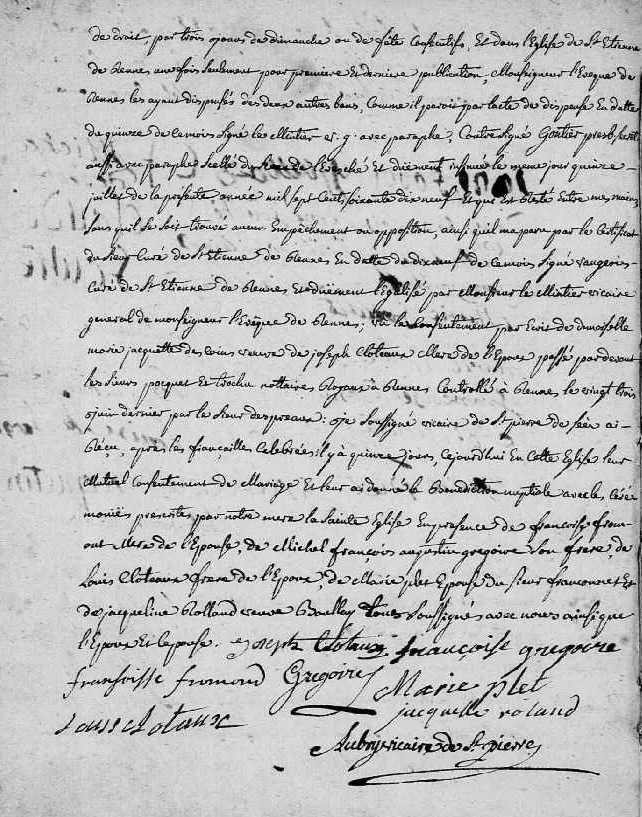 de droit, par trois jours de dimanche ou de fête Consecutifs, Et dans l'Eglise de St Etienne
de Rennes une fois seulement pour premiere Et derniere publication, Monseigneur l'Eveque de
Rennes les ayant dispensés des deux autres bans, Comme il paroit par lacte de dispense En datte
de quinze de cemois Signé Le Mintier v. g. avec paraphe, Contre Signé Gontier presb. Secret
aussi avec paraphe Scellé du Sceau de l'Evêché Et duement insinué le meme jour quinze
juillet de la presente année mil sept Cent Soixante dix neuf Et que Est Resté Entre mes mains
Sans quil se soit trouvé aucun Empêchement ou opposition, ainsi quil ma paru par le Certificat
du Sieur Curé de St Etienne de Rennes En datte du dix neuf de cemois Signé
Curé de St Etienne de Rennes et duëment légalisé par Monsieur le Mintier vicaire
general de monseigneur l'Evêque de Rennes; Vû le Consentement par Ecrit de demoiselle
marie jacquette des vaux veuve de joseph Cloteaux Mere de l'Epoux passé par devant
les Sieurs pocquet Et trochu nottaires Royaux à Rennes Controllé à Rennes le vingt trois
juin dernier par le Sieur despreaux: je Soussigné vicaire de St pierre de ai
Récu, après les fiançailles Celebrées il y à quinze jours, cejourdhui En Cette Eglise leur
Mutuel Consentement de Mariage Et leur ai donné la Benediction nuptiale avec les Céré
monies prescrites par notre mere la Sainte Eglise En presence de françoise from
ont Mere de l'Epouse, de Michel françois augustin gregoire Son frere, de
Louis Cloteaux frere de l'Epoux, de Marie plet Epouse du Sieur franconnet Et
de jacqueline Rolland veuve Boullay tous Soussignés avec nous ainsi que
l'Epoux Et l'epouse. joseph Clotaux françoise gregoire
fransoisse fromond Gregoire Marie plet
jacquelle roland
Louis clotaux
Aubry vicaire de St pierre